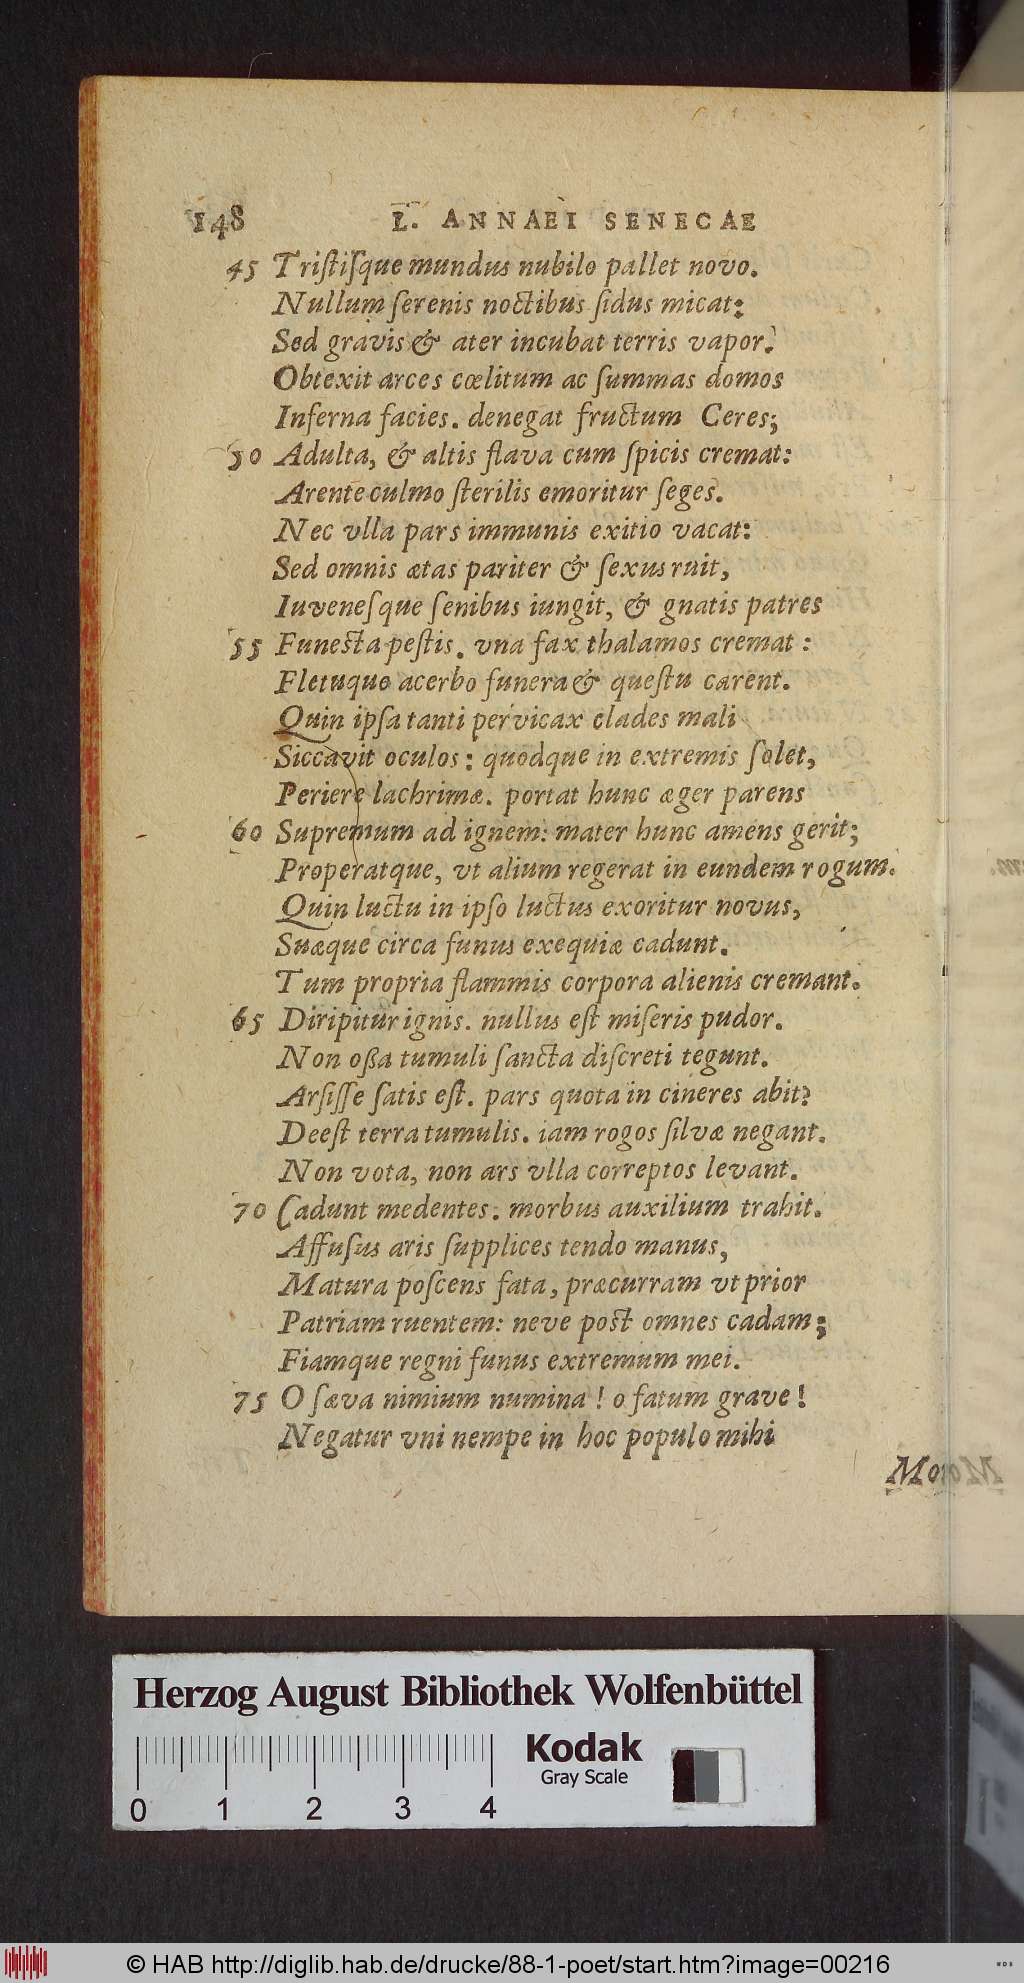 148 L. ANNAEI SENECAE
45 Tristiſque mundus nubilo pallet novo.
Nullum ſerenis noctibus ſidus micat:
Sed gravis & ater incubat terris vapor.
Obtexit arces cœlitum ac ſummas domos
Inferna facies. denegat fructum Ceres;
50 Adulta, & altis flava cum ſpicis cremat:
Arente culmo ſterilis emoritur ſeges.
Nec vlla pars immunis exitio vacat:
Sed omnis ætas pariter & ſexus ruit,
Iuveneſque ſenibus iungit, & gnatis patres
55 Funesta peſtis. vna fax thalamos cremat:
Fletuque acerbo funera & queſtu carent.
Quin ipſa tanti pervicax clades mali
Siccavit oculos: quodque in extremis ſolet,
Periere lachrimæ. portat hunc æger parens
60 Supremum ad ignem: mater hunc amens gerit;
Properatque, vt alium regerat in eundem rogum.
Quin luctu in ipſo luctus exoritur novus,
Suæque circa funus exequiæ cadunt.
Tum propria flammis corpora alienis cremant.
65 Diripitur ignis. nullus eſt miſeris pudor.
Non oßa tumuli ſancta diſcreti tegunt.
Arſiſſe ſatis eſt. pars quota in cineres abit?
Deeſt terra tumulis. iam rogos ſilvæ negant.
Non vota, non ars vlla correptos levant.
70 Cadunt medentes. morbus auxilium trahit.
Affuſus aris ſupplices tendo manus,
Matura poſcens fata, præcurram vt prior
Patriam ruentem: neve post omnes cadam;
Fiamque regni funus extremum mei.
75 O ſæva nimium numina! o fatum grave!
Negatur vni nempe in hoc populo mihi
Mo
Herzog August Bibliothek Wolfenbüttel
Kodak
Gray Scale
0 1 2 3 4
© HAB http://diglib.hab.de/drucke/88-1-poet/start.htm?image=00216